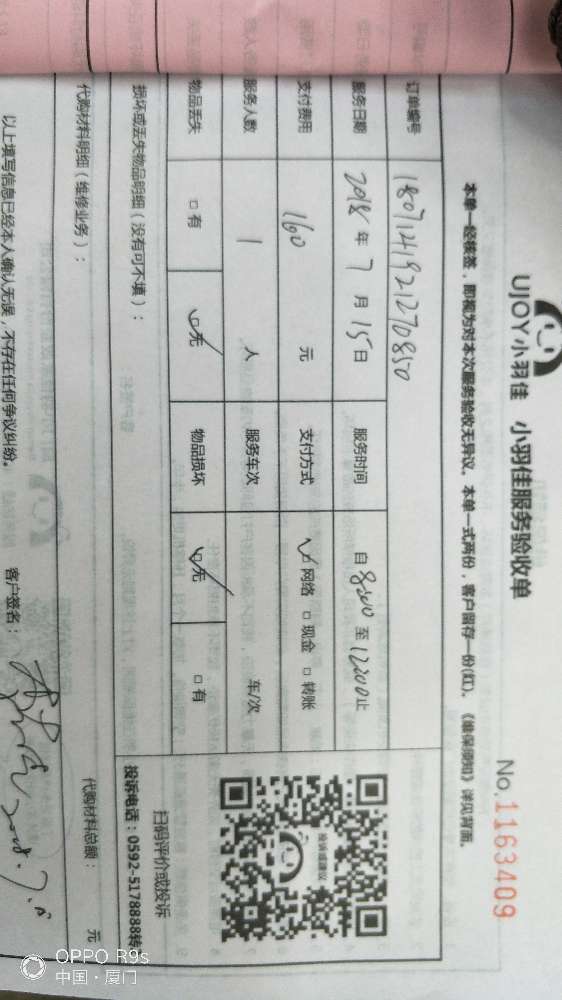 UJOY小羽佳 小羽佳服务验收单
No.1163409
本单一经接签,即视为对本次服务验收无异议。本单一式两份,客户留存一份(红)。《维保须知》详见背面。
订单编号 180714192127 0850
服务日期 2018 年 7 月 15 日 服务时间 自 8:00 至 12:00 止
支付费用 160 元 支付方式 ☑ 网络 □ 现金 □ 转账
服务人数 1 人 服务车次 车/次
物品丢失 □ 有 ☑ 无 物品损坏 ☑ 无 □ 有
损坏或丢失物品明细(没有可不填):
投诉或建议
扫码评价或投诉
投诉电话:0592-5178888转
代购材料明细(维修业务):
代购材料总额: 元
以上填写信息已经本人确认无误,不存在任何争议纠纷。 客户签名:
OPPO R9s
中国·厦门